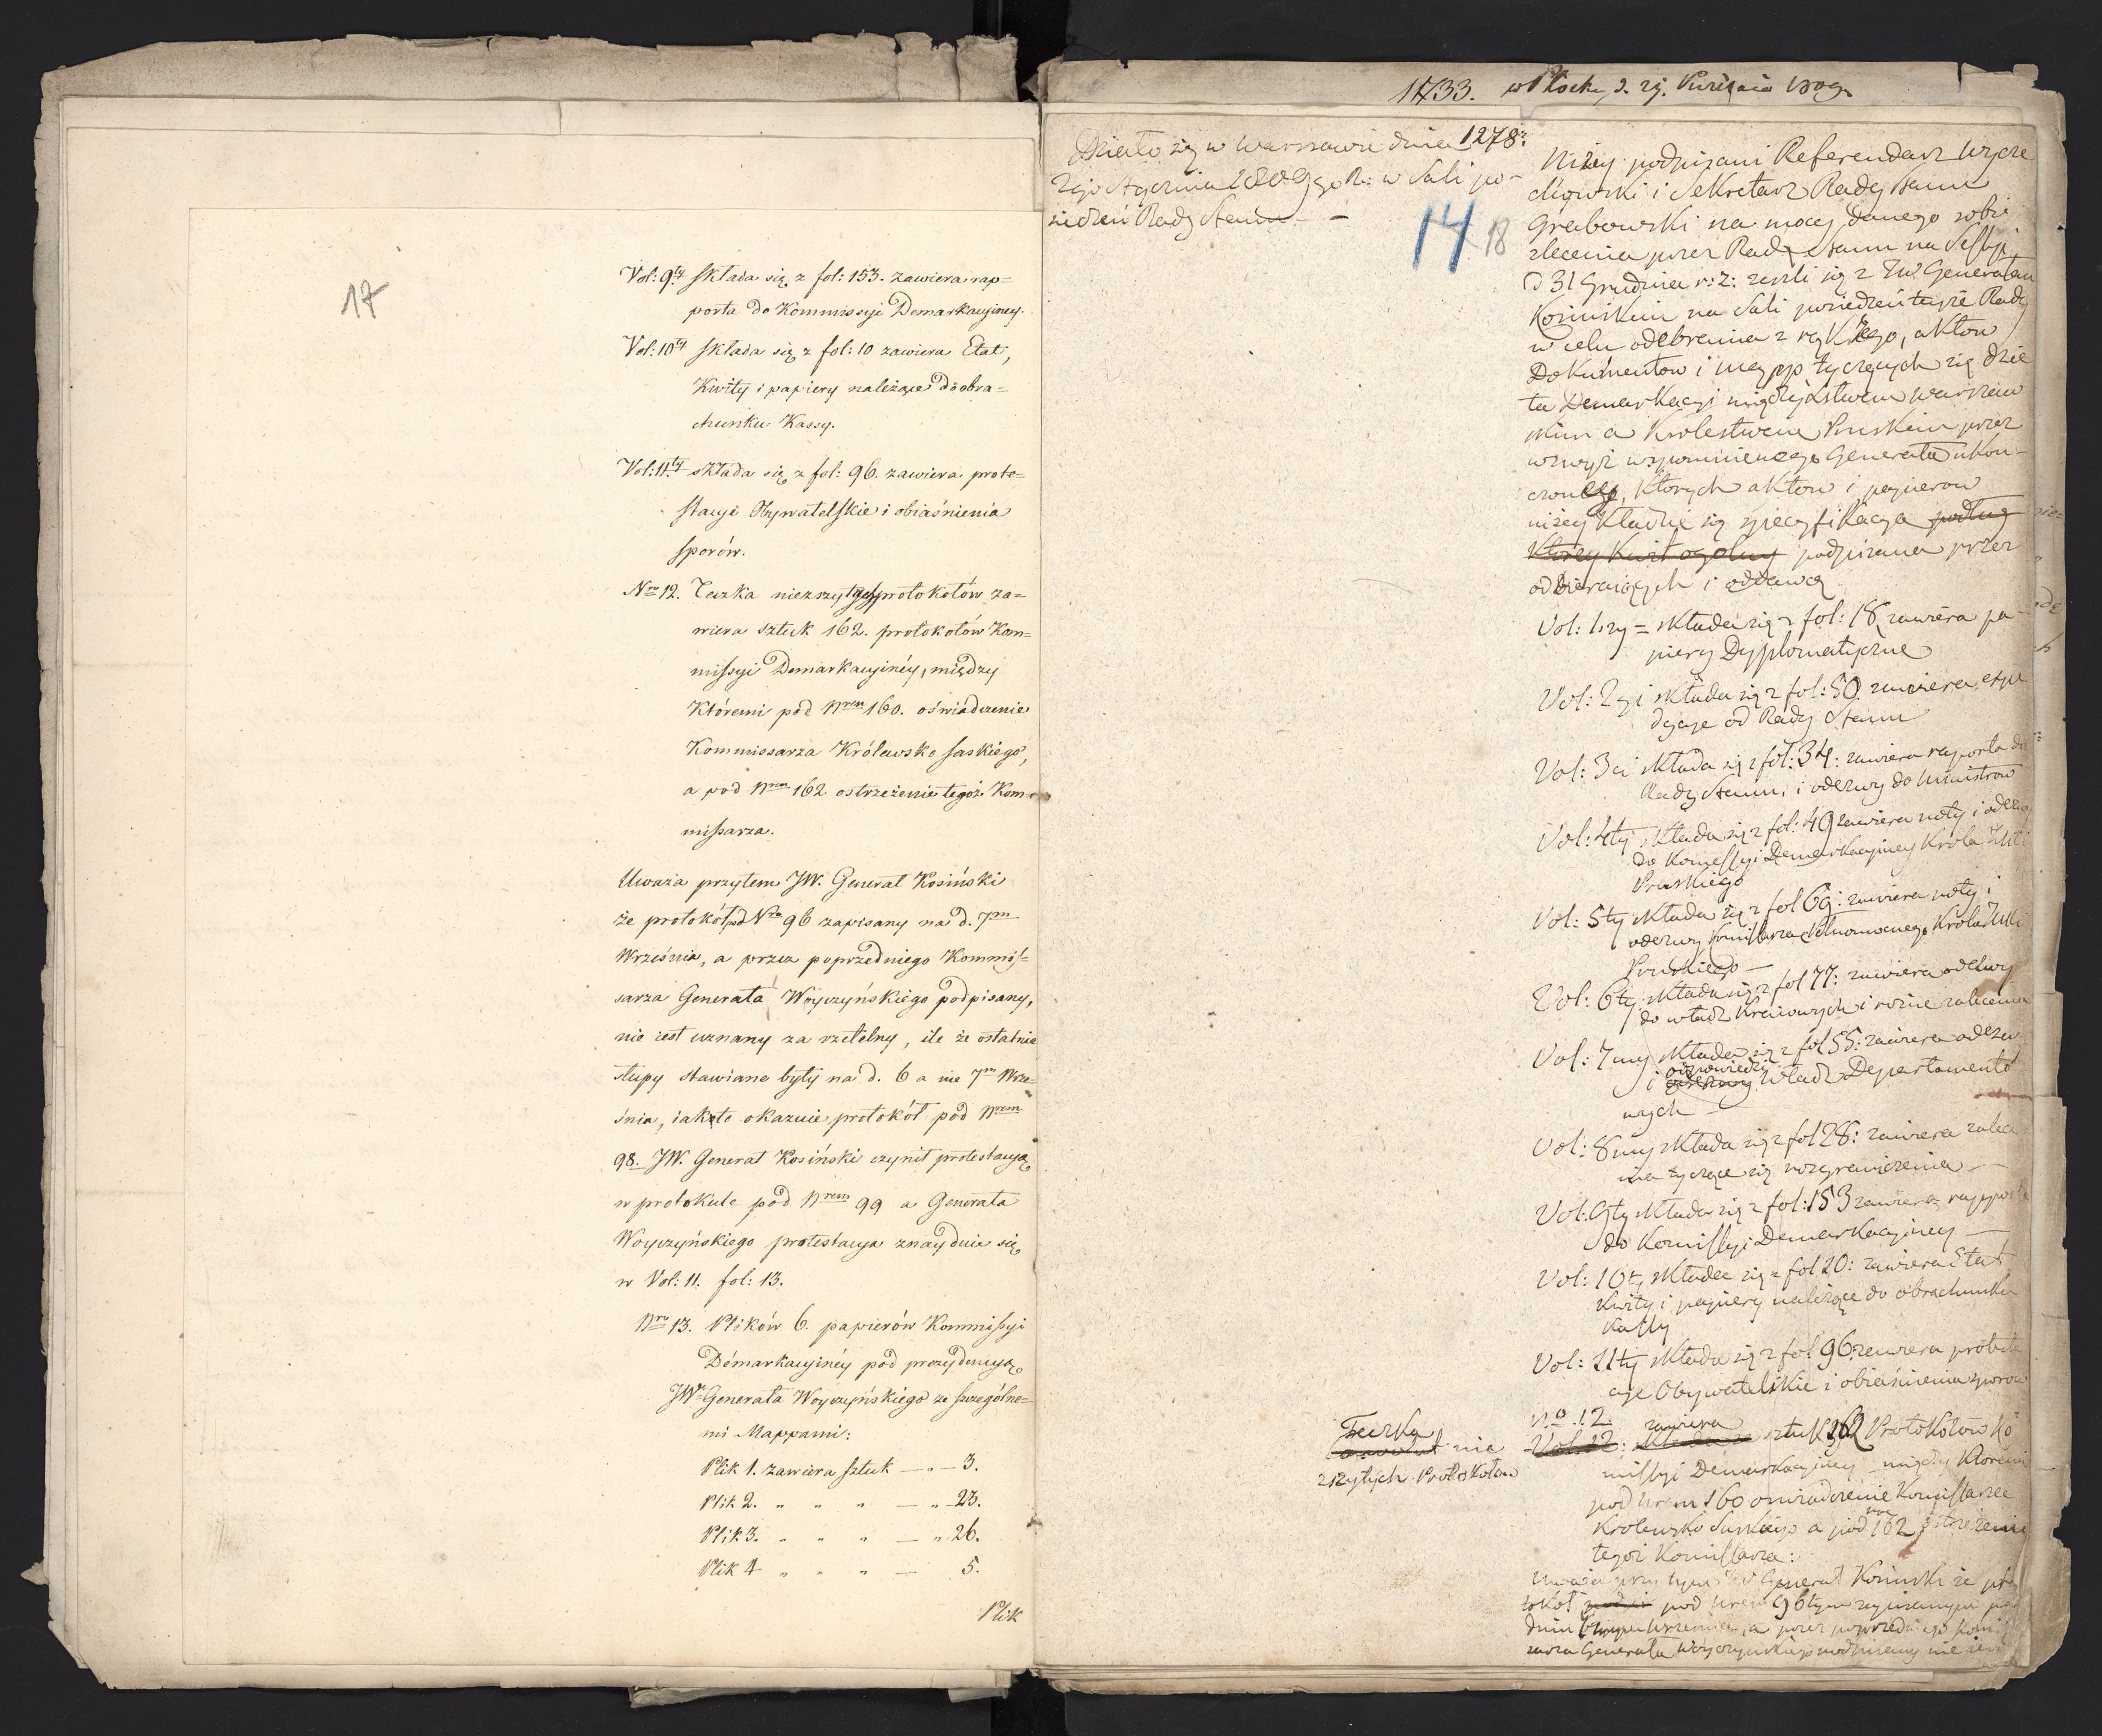 17
Vol: 9ty składa się z fol: 153. zawiera rap=
porta do Kommissyi Demarkacyiney.
Vol: 10ty składa się z fol: 10 zawiera Etat,
Kwity i papiery należące do obra=
chunku Kassy.
Vol: 11ty składa się z fol: 96. zawiera prote=
stacye Obywatelskie i obiaśnienia
sporów.
Nro 12. Teczka niezszytych protokołów za=
wiera sztuk 162. protokołów Kom=
missyi Demarkacyinéy, między
Któremi pod Nrem 160. oświadczenie
Kommissarza Królewsko Saskiego,
a pod Nrem 162 ostrzeżenie tegoż Kom=
missarza.
Uważa przytem JW. Generał Kosiński
że protokół pod Nro 96 zapisany na d. 7m
Września, a przez poprzedniego Kommis=
sarza Generała Woyczyńskiego podpisany,
nie iest uznany za rzetelny, ile że ostatnie
słupy stawiane były na d. 6 a nie 7m Wrze=
śnia, iak to okazuie protokół pod Nrem
98. JW. Generał Kosiński czynił protestacyą
w protokule pod Nrem 99 a Generała
Woyczyńskiego protestacya znayduie się
w Vol: 11. fol: 13.
Nro 13. Plików 6. papierów Kommissyi
Démarkacyinéy pod prezydencyą
JWo Generała Woyczyńskiego ze szczególne=
mi Mappami:
Plik 1. zawiera sztuk — " — 3.
Plik 2. " " " — " 23.
Plik 3. " " " — " 26.
Plik 4 " " " — 5.
Plik
1733. w Płocku d. 29. 1809
1278:
Działo się w Warszawie dnia
2go Stycznia 1809go R: w Sali po-
siedzeń Rady Stanu - -
14 18
Niżey podpisani Referendarz Wycze
chowski i Sekretarz Rady Stanu
Grabowski na mocy danego sobie
zlecenia przez Radę Stanu na Sessyi
d 31 Grudnia r: z: zeszli się z JW. Generałem
Kosińskim na Sali posiedzeń teyże Rady
w celu odebrania z rąk iego, aktow
Dokumentow i mapp tyczących się dzie
ła Demarkacyi między Xstwem Warszaw
skim a Krolestwem Pruskim przez
wzwyż wspomnionego Generała ukon-
czonego, ktorych aktow i papierow
niżey kładzie się specyfikacya podług
ktorey kwit ogolny podpisana przez
odbieraiących i oddawcę
Vol: 1szy = składa się z fol: 18 zawiera pa-
piery Dyplomatyczne
Vol: 2gi składa się z fol: 50 zawiera expe
dycye od Rady Stanu
Vol: 3ci składa się z fol: 34: zawiera raporta do
Rady Stanu, i odezwy do Ministrow
Vol: 4ty składa się z fol: 49 zawiera noty i odezwy
do Komissyi Demarkacyiney Krola JMci
Pruskiego
Vol: 5ty składa się z fol 69: zawiera noty i
odezwy Komissarza Pełnomocnego Krola JMci
Pruskiego —
Vol: 6ty składa się z fol 77: zawiera odezwy
do władz Kraiowych i rożne zalecenia
Vol: 7my składa się z fol 55: zawiera odezw
odpowiedzi
i odezwy Władz Departamento
wych —
Vol: 8my składa się z fol 28: zawiera zalece
nia tyczące się rozgraniczenia —
Vol: 9ty składa się z fol: 153 zawiera rapporta
do Komissyi Demarkacyiney —
Vol: 10ty składa się z fol 20: zawiera Etat
Kwity i papiery należące do obrachunku
Kassy
Vol: 11ty składa się z fol 96 zawiera protesta
cye Obywatelskie i obiaśnienia sporow
No. 12. zawiera
Teczka
nie
zszytych Protokołow
Vol: 12: składa się sztuk 162 Protokołow Ko
missyi Demarkacyiney między ktoremi
pod Nrem 160 oswiadczenie Komissarza
Krolewsko Saskiego a pod nro 162 ostrzeżenie
tegoż Komissarza:
Uważa przy tym JW Generał Kosinski że pro
tokoł pod Nrem 96tym zapisanym pod
dniem Wrzesnia, a przez poprzedniego Komis
sarza Generała Woyczynskiego podpisany nie iest